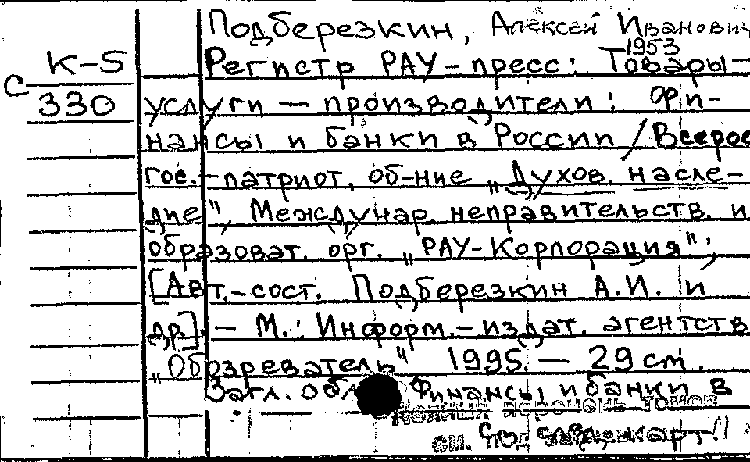 Подберезкин, Алексей Иванович
1953
К-5 Регистр РАУ-пресс: Товары-
С
330 услуги — производители: фи-
нансы и банки в России / Всерос
гос.-патриот. об-ние „Духов. насле-
дие", Междунар. неправительств. и
образоват. орг. „РАУ-Корпорация";
[Авт.-сост. Подберезкин А.И. и
др]. — М.: Информ.-издат. агентств
„Обозреватель" 1995. — 29 cm.
Загл. обл Финансы и банки в
перечень томов
см. под